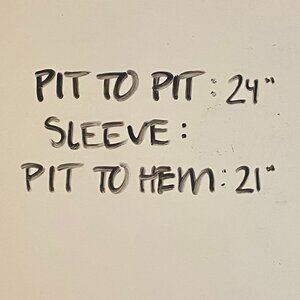 PIT TO PIT: 24"
SLEEVE:
PIT TO HEM: 21"